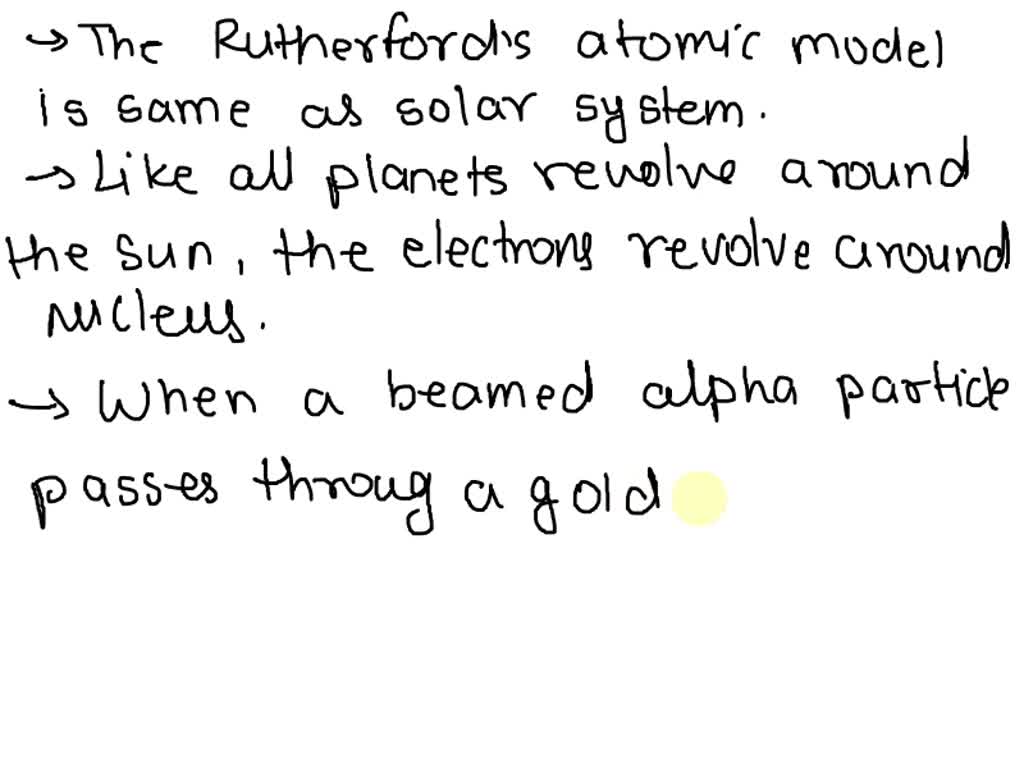 → The Rutherford's atomic model
is same as solar system.
→ Like all planets revolve around
the sun, the electrons revolve around
nucleus.
→ When a beamed alpha particle
passes throug a gold